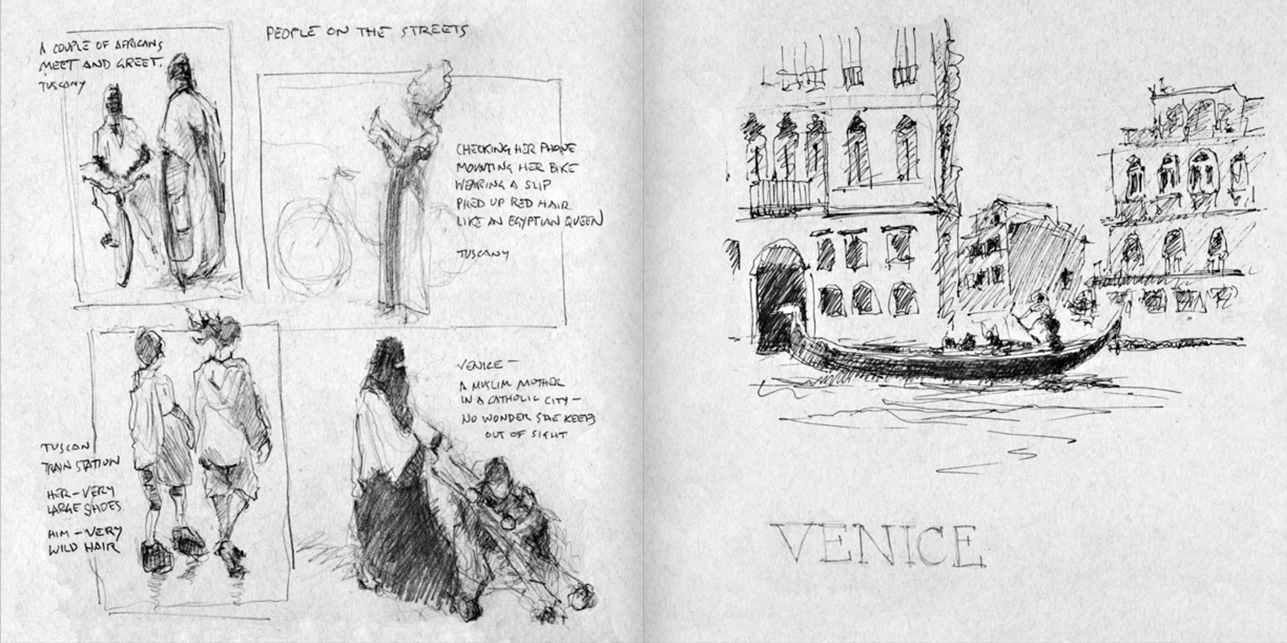 PEOPLE ON THE STREETS
A COUPLE OF AFRICANS
MEET AND GREET.
TUSCANY
CHECKING HER PHONE
MOUNTING HER BIKE
WEARING A SLIP
PILED UP RED HAIR
LIKE AN EGYPTIAN QUEEN
TUSCANY
TUSCAN
TRAIN STATION
HER - VERY
LARGE SHOES
HIM - VERY
WILD HAIR
VENICE -
A MUSLIM MOTHER
IN A CATHOLIC CITY -
NO WONDER SHE KEEPS
OUT OF SIGHT
VENICE